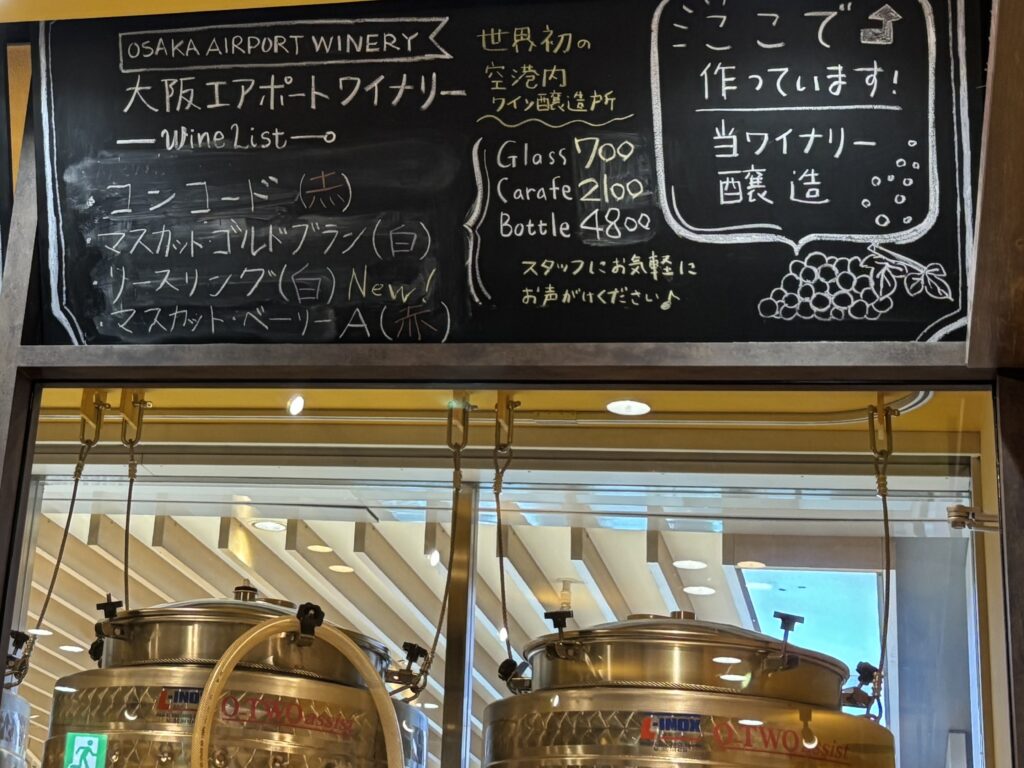 OSAKA AIRPORT WINERY
大阪エアポートワイナリー
Wine List
・コンコード(赤)
・マスカット・ゴルドブラン(白)
・リースリング(白) New!
・マスカット・ベーリーA(赤)
世界初の
空港内
ワイン醸造所
Glass 700
Carafe 2100
Bottle 4800
スタッフにお気軽に
お声がけください♪
ここで
作っています!
当ワイナリー
醸造
L-INOX
Q-TWO assist
L-INOX
Q-TWO assist